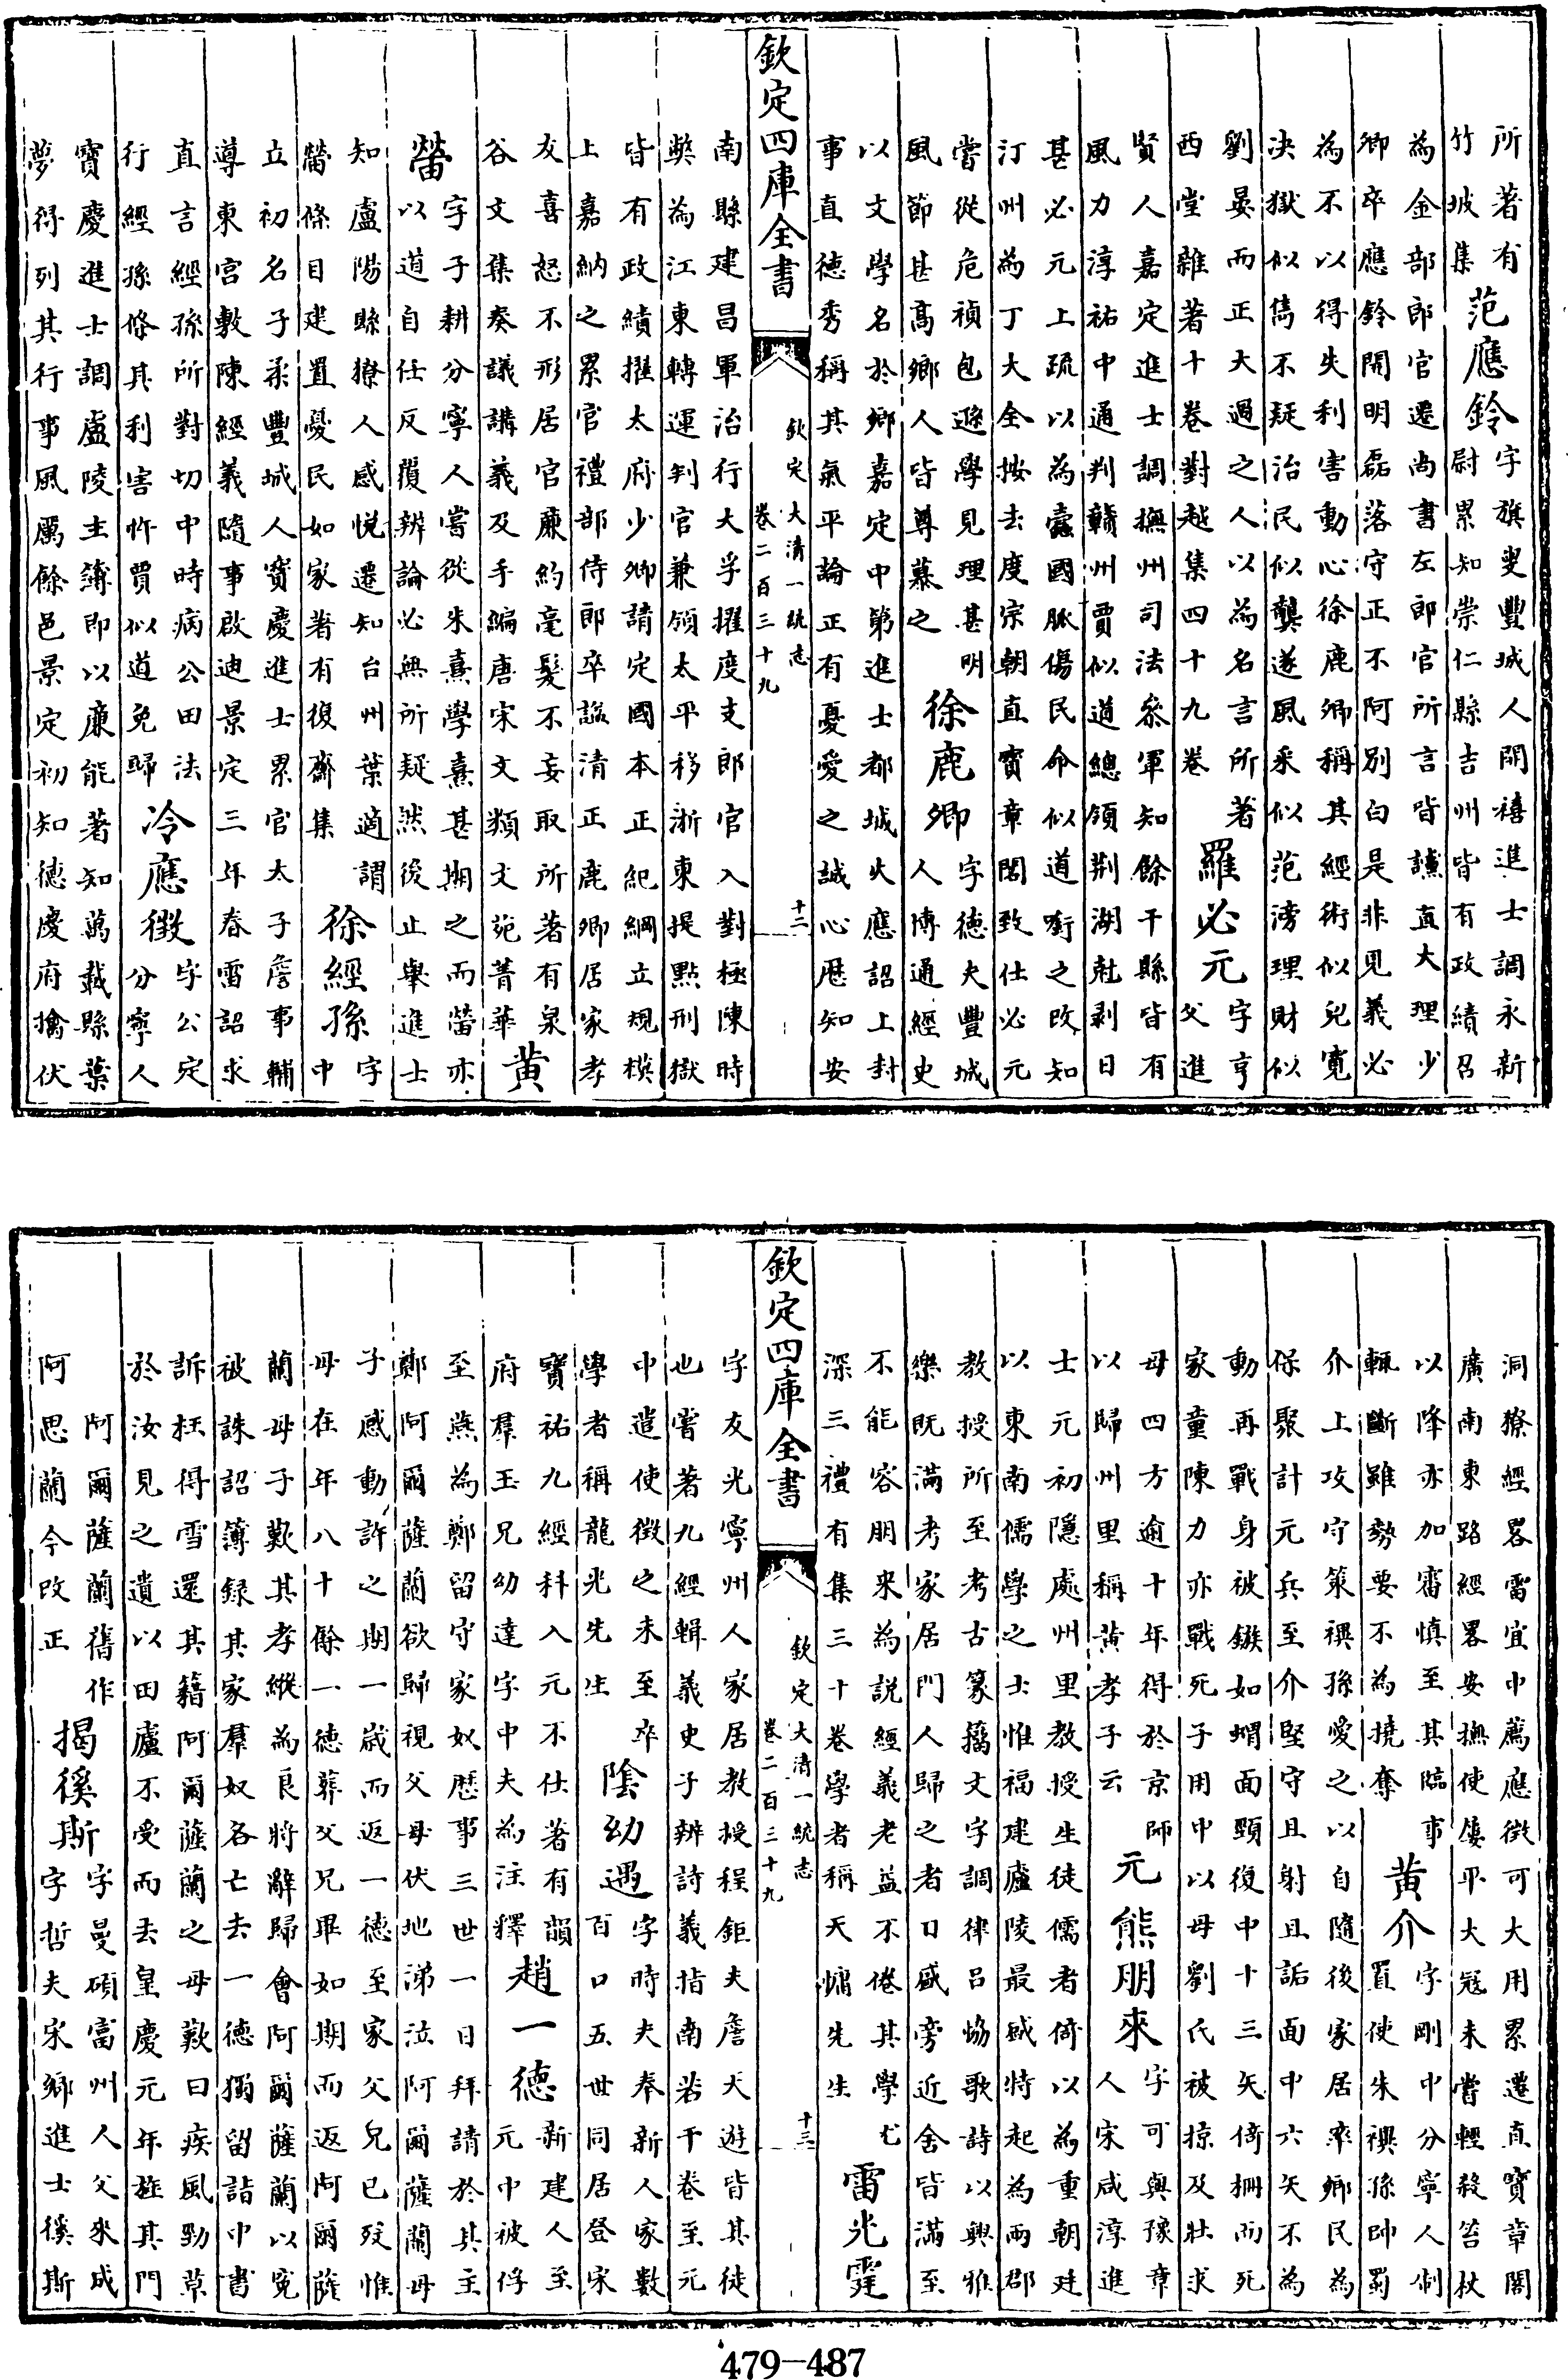 所著有
竹坡集
范應鈴
字旗叟豐城人開禧進士調永新
尉累知崇仁縣吉州皆有政績召
為金部郎官遷尚書左郎官所言皆讜直大理少
卿卒應鈴開明磊落守正不阿別白是非見義必
為不以得失利害動心徐鹿卿稱其經術似兒寛
決獄似雋不疑治民似龔遂風采似范滂理財似
劉晏而正大過之人以為名言所著
西堂雜著十卷對越集四十九卷
羅必元
字亨
父進
賢人嘉定進士調撫州司法參軍知餘干縣皆有
風力淳祐中通判贑州賈似道總領荆湖尅剥日
甚必元上疏以為蠹國脈傷民命似道銜之改知
汀州為丁大全按去度宗朝直寶章閣致仕必元
嘗從危禎包遜學見理甚明
風節甚高鄉人皆尊慕之
徐鹿卿
字德夫豐城
人博通經史
以文學名於鄉嘉定中第進士都城火應詔上封
事直德秀稱其氣平論正有憂愛之誠心歴知安
欽定四庫全書
欽定大清一統志
卷二百三十九
十二
南縣建昌軍治行大孚擢度支郎官入對極陳時
弊為江東轉運判官兼領太平移浙東提點刑獄
皆有政績擢太府少卿請定國本正紀綱立規模
上嘉納之累官禮部侍郎卒諡清正鹿卿居家孝
友喜怒不形居官廉約毫髮不妄取所著有泉
谷文集奏議講義及手編唐宋文類文苑菁華
黄
㽦
字子耕分寧人嘗從朱熹學熹甚期之而㽦亦
以道自任反覆辨論必無所疑然後止舉進士
知盧陽縣獠人感悦遷知台州葉適謂
㽦條目建置憂民如家著有復齋集
徐經孫
字
中
立初名子柔豐城人寶慶進士累官太子詹事輔
導東宫敷陳經義隨事啟迪景定三年春雷詔求
直言經孫所對切中時病公田法
行經孫條其利害忤賈似道免歸
冷應徴
字公定
分寧人
寶慶進士調盧陵主簿即以廉能著知萬載縣葉
夢得列其行事風厲餘邑景定初知德慶府擒伏
洞獠經畧雷宜中薦應徴可大用累遷直寶章閣
廣南東路經畧安撫使屢平大冦未嘗輕殺笞杖
以降亦加審慎至其臨事
輒斷雖勢要不為撓奪
黄介
字剛中分寧人制
置使朱禩孫帥蜀
介上攻守策禩孫愛之以自隨後家居率鄉民為
保聚計元兵至介堅守且射且詬面中六矢不為
動再戰身被鏃如蝟面頸復中十三矢倚柵而死
家童陳力亦戰死子用中以母劉氏被掠及壯求
母四方逾十年得於京師
以歸州里稱黄孝子云
元
熊朋來
字可與豫章
人宋咸淳進
士元初隱處州里教授生徒儒者倚以為重朝廷
以東南儒學之士惟福建廬陵最盛特起為兩郡
教授所至考古篆籀文字調律吕恊歌詩以興雅
樂既滿考家居門人歸之者日盛旁近舍皆滿至
不能容朋來為說經義老益不倦其學尤
深三禮有集三十卷學者稱天慵先生
雷光霆
欽定四庫全書
欽定大清一統志
卷二百三十九
十三
字友光寧州人家居教授程鉅夫詹天遊皆其徒
也嘗著九經輯義史子辨詩義指南若干卷至元
中遣使徴之未至卒
學者稱龍光先生
陰幼遇
字時夫奉新人家數
百口五世同居登宋
寶祐九經科入元不仕著有韻
府羣玉兄幼達字中夫為注釋
趙一德
新建人至
元中被俘
至燕為鄭留守家奴歴事三世一日拜請於其主
鄭阿爾薩蘭欲歸視父母伏地涕泣阿爾薩蘭母
子感動許之期一歲而返一德至家父兄已歿惟
母在年八十餘一德葬父兄畢如期而返阿爾薩
蘭母子歎其孝縱為良將辭歸會阿爾薩蘭以寃
被誅詔簿録其家羣奴各亡去一德獨留詣中書
訴枉得雪還其籍阿爾薩蘭之母歎曰疾風勁草
於汝見之遺以田廬不受而去皇慶元年旌其門
阿爾薩蘭舊作
阿思蘭今改正
揭徯斯
字曼碩富州人父來成
字哲夫宋鄉進士徯斯
479-487